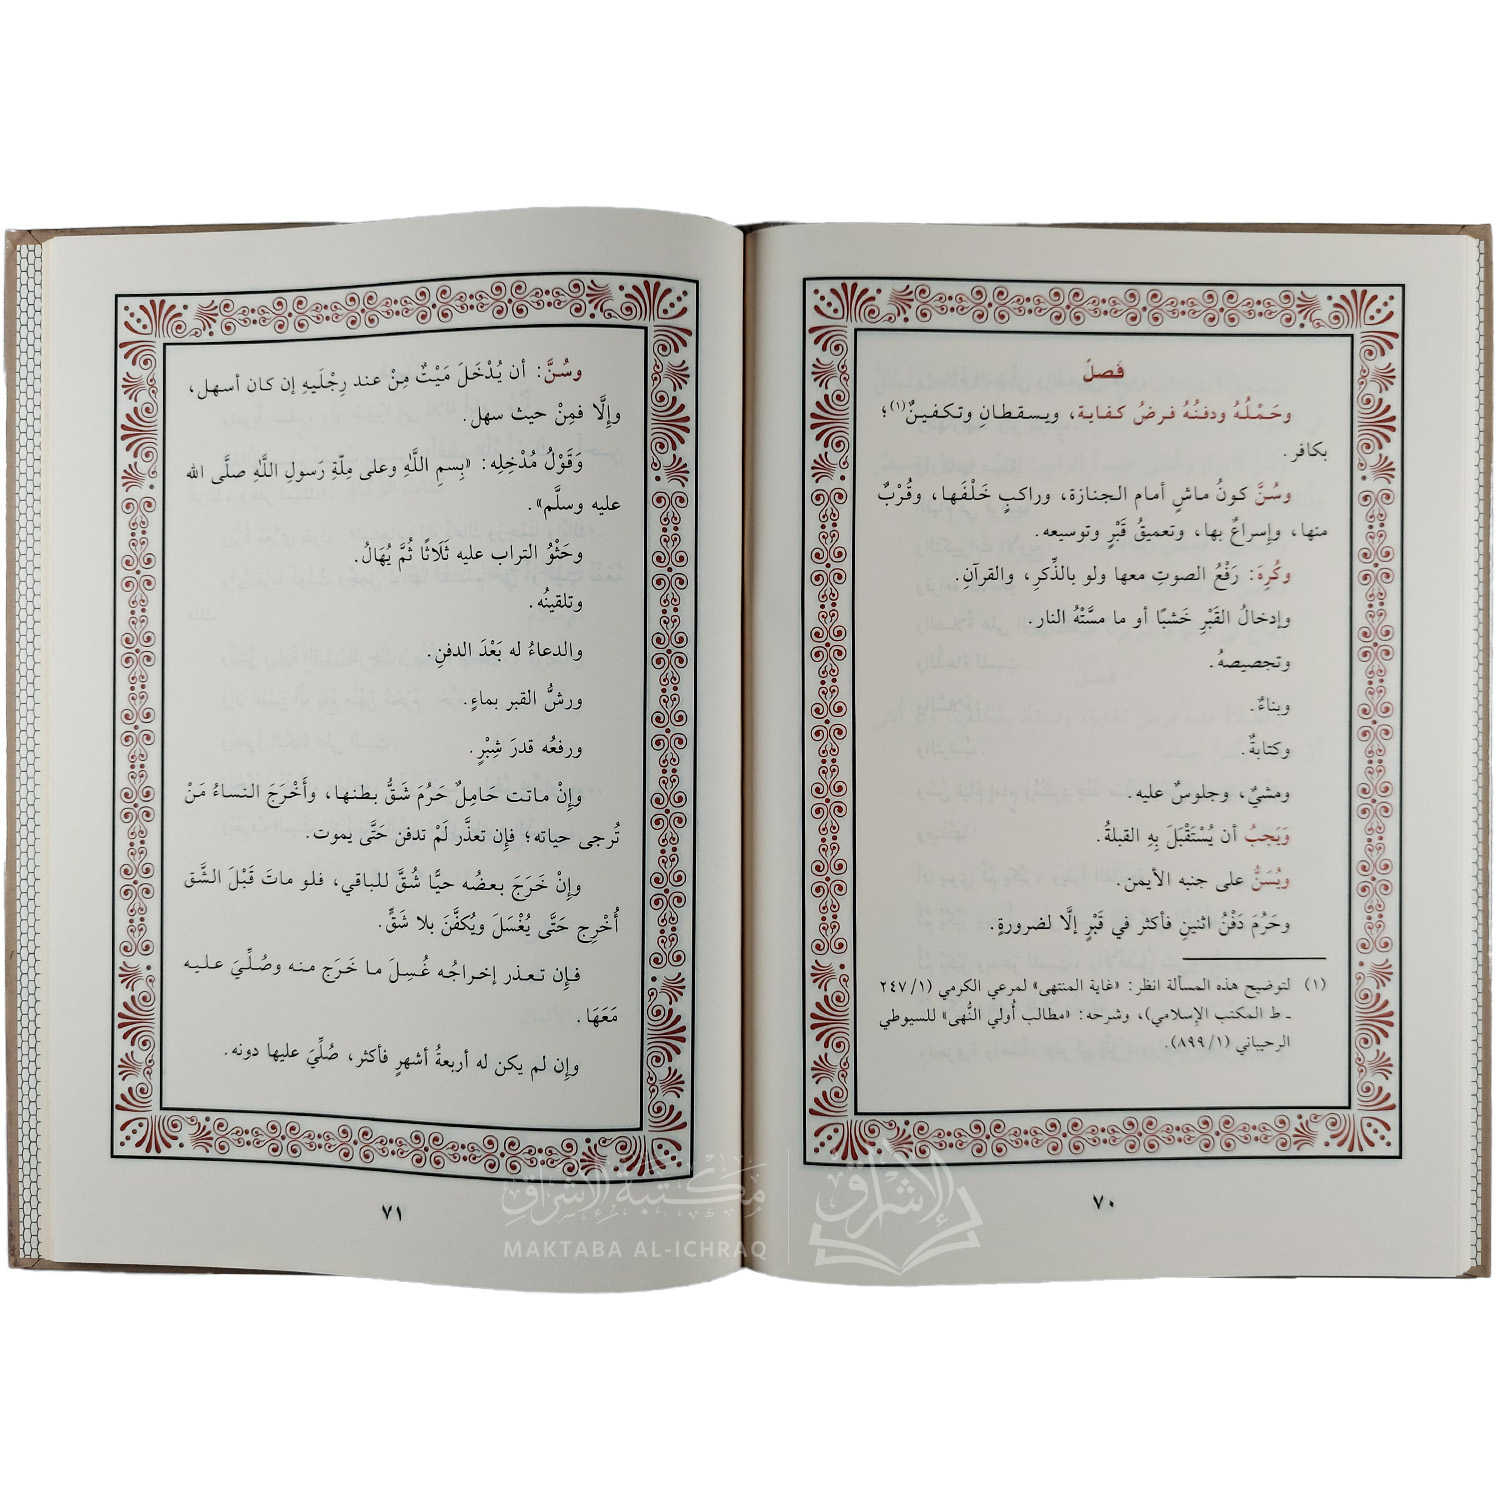 فَصلٌ
وحَمْلُهُ ودفنُهُ فرضُ كفاية، ويسقطانِ وتكفينٌ(١)؛
بكافر.
وسُنَّ كونُ ماشٍ أمام الجنازة، وراكبٍ خَلْفَها، وقُرْبٌ
منها، وإسراعٌ بها، وتعميقُ قَبْرٍ وتوسيعه.
وكُرِهَ: رَفْعُ الصوتِ معها ولو بالذِّكرِ، والقرآنِ.
وإدخالُ القَبْرِ خَشبًا أو ما مسَّتْهُ النار.
وتجصيصهُ.
وبناءٌ.
وكتابةٌ.
ومشيٌ، وجلوسٌ عليه.
وَيَجبُ أن يُسْتَقْبَلَ بِهِ القبلةُ.
ويُسَنُّ على جنبه الأيمن.
وحَرُمَ دَفْنُ اثنينِ فأكثر في قَبْرٍ إلَّا لضرورةٍ.
(١) لتوضيح هذه المسألة انظر: «غاية المنتهى» لمرعي الكرمي (٢٤٧/١
ـ ط المكتب الإسلامي)، وشرحه: «مطالب أُولي النُّهى» للسيوطي
الرحيباني (٨٩٩/١).
٧٠
وسُنَّ: أن يُدْخَلَ مَيْتٌ مِنْ عند رِجْلَيهِ إن كان أسهل،
وإلَّا فمِنْ حيث سهل.
وَقَوْلُ مُدْخِلِه: «بِسمِ اللَّهِ وعلى مِلّةِ رَسولِ اللَّهِ صلَّى الله
عليه وسلَّم».
وحَثْوُ التراب عليه ثَلَاثًا ثُمَّ يُهَالُ.
وتلقينُه.
والدعاءُ له بَعْدَ الدفنِ.
ورشُّ القبر بماءٍ.
ورفعُه قدرَ شِبْرٍ.
وإنْ ماتت حَامِلٌ حَرُمَ شَقُّ بطنها، وأَخْرَجَ النساءُ مَنْ
تُرجى حياته؛ فإن تعذَّر لَمْ تدفن حَتَّى يموت.
وإنْ خَرَجَ بعضُه حيًّا شُقَّ للباقي، فلو ماتَ قَبْلَ الشَّق
أُخْرِج حَتَّى يُغْسَلَ ويُكفَّنَ بلا شَقٍّ.
فإن تعذر إخراجُه غُسِلَ ما خَرَج منه وصُلِّيَ عليه
مَعَهَا.
وإن لم يكن له أربعةُ أشهرٍ فأكثر، صُلِّيَ عليها دونه.
٧١
مكتبة الإشراق
MAKTABA AL-ICHRAQ
الإشراق